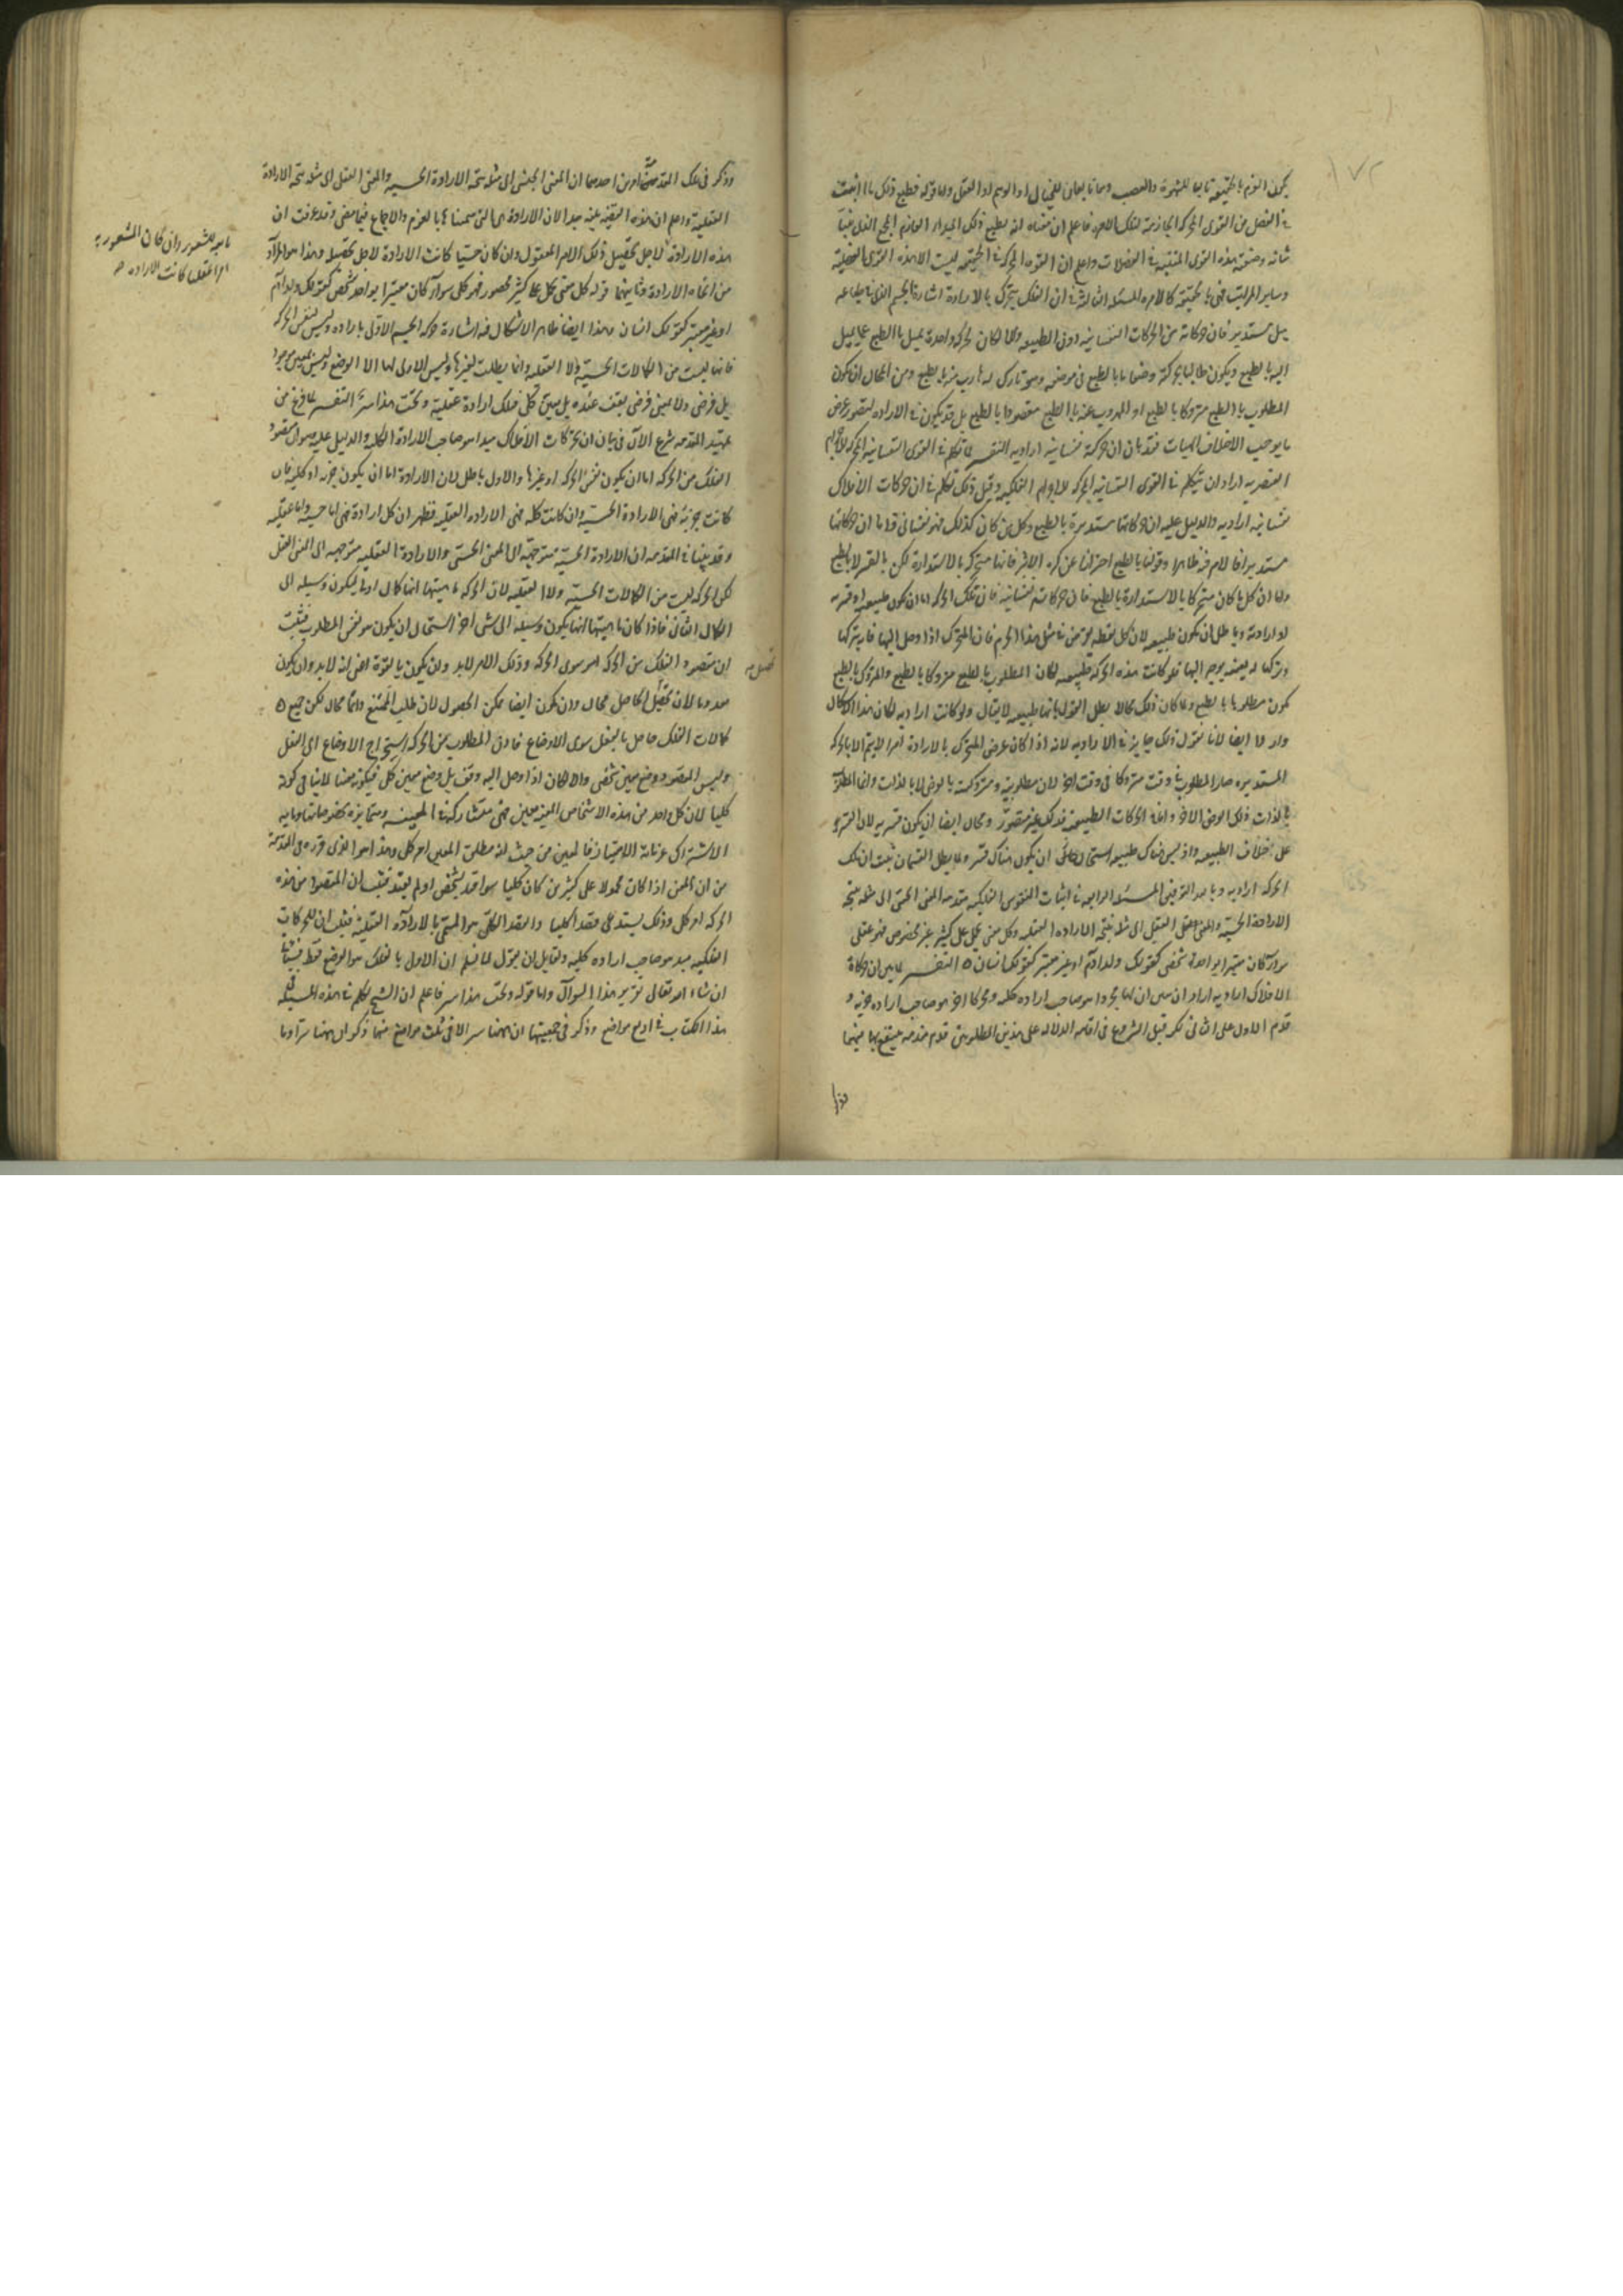 يكون العزم بالحقيقة تابعا للشهوة والغضب وهما تابعان للخيال او الوهم او العقل واما قوله فطيع ذلك ما اثبت
في العضل من القوى المحركة
شانه وصفته هذه القوى المنبثه في العضلات واعلم ان القوه المحركة في الحقيقه ليست الا هذه القوى العضلية
وساير المراتب فهى بالحقيقة كالامره المسئله الثالثه في ان الفلك يتحرك بالارادة اشارة الجسم الذى في طباعه
ميل مستدير فان حركاته من الحركات النفسانيه دون الطبيعيه والا لكان بحركه واحدة يميل بالطبع عما يميل
اليه بالطبع ويكون طالبا بحركته وضعا ما بالطبع في موضعه وهو تارك له هارب منه بالطبع ومن المحال ان يكون
المطلوب بالطبع متروكا بالطبع او المهروب عنه بالطبع مقصودا بالطبع بل قد يكون في الاراده لتصور غرض
ما يوجب اختلاف الهيات فقد بان ان حركته نفسانيه اراديه التفسير لما تكلم في القوى النفسانيه المحركه للاجرام
العنصريه اراد ان يتكلم في القوى النفسانيه المحركه للاجرام الفلكيه وقبل ذلك تكلم في ان حركات الافلاك
نفسانيه اراديه والدليل عليه ان حركاتها مستديرة بالطبع وكل من كان كذلك فهو نفسانى قولنا ان حركاتها
مستديرة فالامر فيه ظاهر وقولنا بالطبع احترازا عن كره الاثير فانها متحركه بالاستدارة لكن بالقسر لا بالطبع
واما ان كل ما كان متحركا بالاستدارة بالطبع فان حركاته نفسانيه فان تلك الحركه اما ان تكون طبيعيه او قسريه
او اراديه وباطل ان تكون طبيعيه لان كل نقطه تفرض في مثل هذا الجرم فان المتحرك اذا وصل اليها فانه يتركها
وتركها له بعينه توجه اليها فلو كانت هذه الحركه طبيعيه لكان المطلوب بالطبع متروكا بالطبع والمتروك بالطبع
يكون مطلوبا بالطبع ولما كان ذلك محالا بطل القول بانها طبيعيه لا يقال ولو كانت اراديه لكان هذا الاشكال
واردا ايضا لانا نقول ذلك جايز في الاراديه لانه اذا كان غرض المتحرك بالارادة امرا لا يتم الا بالحركه
المستديره صار المطلوب في وقت متروكا في وقت اخر لان مطلوبيته ومتروكيته بالعرض لا بالذات وانما المطلوب
بالذات ذلك الغرض الاخر واما في الحركات الطبيعيه فذلك غير متصور ومحال ايضا ان يكون قسريه لان القسر
على خلاف الطبيعه واذ ليس هناك طبيعه استحال ان يكون هناك قسر ولما بطل القسمان ثبت ان تلك
الحركه اراديه وبالله التوفيق المسئله الرابعه في اثبات النفوس الفلكيه مقدمه المعنى الحسى الى مثله يتجه
الارادة الحسيه والمعنى العقلى الى مثله يتجه الاراده العقليه وكل معنى يحمل على كثير غير محصور فهو عقلى
سواء كان معتبرا بواحد شخصى كقولك ولد آدم او غير معتبر كقولك انسان التفسير لما بين ان حركات
الافلاك اراديه اراد ان يبين ان لها محركا هو صاحب اراده كليه ومحركا اخر هو صاحب اراده جزئيه و
قدم الاول على الثانى لكن قبل الشروع في اقامه الدلاله على هذين المطلوبين قدم مقدمه ينتفع بها فيهما
وذكر في تلك المقدمة امرين احدهما ان المعنى الحسى الى مثله يتجه الارادة الحسيه والمعنى العقلى الى مثله يتجه الارادة
العقليه واعلم ان هذه القضيه بينه جدا لان الارادة هى التى سميناها بالعزم والاجماع فيما مضى وقد عرفت ان
هذه الارادة لاجل تحصيل ذلك الامر المعقول وان كان حسيا كانت الارادة لاجل تحصيله وهذا هو المراد
من اتجاه الارادة وثانيهما قوله كل معنى يحمل على كثير غير محصور فهو كلى سواء كان معتبرا بواحد شخصى كقولك ولد آدم
او غير معتبر كقولك انسان وهذا ايضا ظاهر لا اشكال فيه اشارة حركه الجسم الاول بالاراده وليس لنفس الحركه
فانها ليست من الكمالات الحسية ولا العقليه وانما يطلب لغيرها وليس الاولى لها الا الوضع وليس بمعين موجود
بل فرضى ولا بمعين فرضى يقف عنده بل معين كلى فتلك ارادة عقلية وتحت هذا سر التفسير لما فرغ من
تمهيد المقدمه شرع الآن في بيان ان لحركات الافلاك مبدا هو صاحب الارادة الكليه والدليل عليه هو ان مقصود
الفلك من الحركه اما ان يكون نفس الحركه او غيرها والاول باطل لان الارادة اما ان يكون جزئيه او كليه فان
كانت جزئية فهى الارادة الحسية وان كانت كليه فهى الاراده العقليه فظهر ان كل ارادة فهى اما حسيه واما عقليه
وقد بينا في المقدمه ان الارادة الحسية متوجهة الى المعنى الحسى والارادة العقليه متوجهه الى المعنى العقلى
لكن الحركه ليست من الكمالات الحسية ولا العقليه لان الحركه ماهيتها انها كمال اول ليكون وسيله الى
الكمال الثانى فاذا كان ماهيتها انها يكون وسيله الى شى آخر استحال ان يكون هو نفس المطلوب فثبت
ان مقصود الفلك من الحركه امر سوى الحركه وذلك الامر لا بد وان يكون بالقوة اعنى انه لا بد وان يكون
معدوما لان تحصيل الحاصل محال وان يكون ايضا ممكن الحصول لان طلب الممتنع دائما محال لكن جميع
كمالات الفلك حاصل بالفعل سوى الاوضاع فاذن المطلوب من الحركه استخراج الاوضاع الى الفعل
وليس المقصود وضع معين شخصى والا لكان اذا وصل اليه وقف بل وضع معين كلى فيكون معينا لا ينافى كونه
كليا لان كل واحد من هذه الاشخاص المعينه معين فهى متشاركة في المعينيه ومتمايزه بخصوصياتها وما به
الاشتراك غير ما به الامتياز فالمعين من حيث انه مطلق المعين امر كلى وهذا هو الذى قرره في المقدمة
من ان المعنى اذا كان محمولا على كثيرين كان كليا سواء قيد بشخص او لم يقيد فثبت ان المقصود من هذه
الحركه امر كلى وذلك يستدعى قصدا كليا والقصد الكلى هو المسمى بالارادة العقلية فثبت ان للحركات
الفلكيه مبدا هو صاحب اراده كليه ولقايل ان يقول لم قلتم ان الاولى بالفلك هو الوضع فقط
ان شاء الله تعالى تقرير هذا السوال واما قوله وتحت هذا سر فاعلم ان الشيخ تكلم في هذه المسئله
هذا الكتاب في اربع مواضع وذكر في جميعها ان ههنا سرا الا في ثلث مواضع منها ذكر ان ههنا سرا وما
ما به للشعور وان كان المشعور به
امرا عقليا كانت الاراده